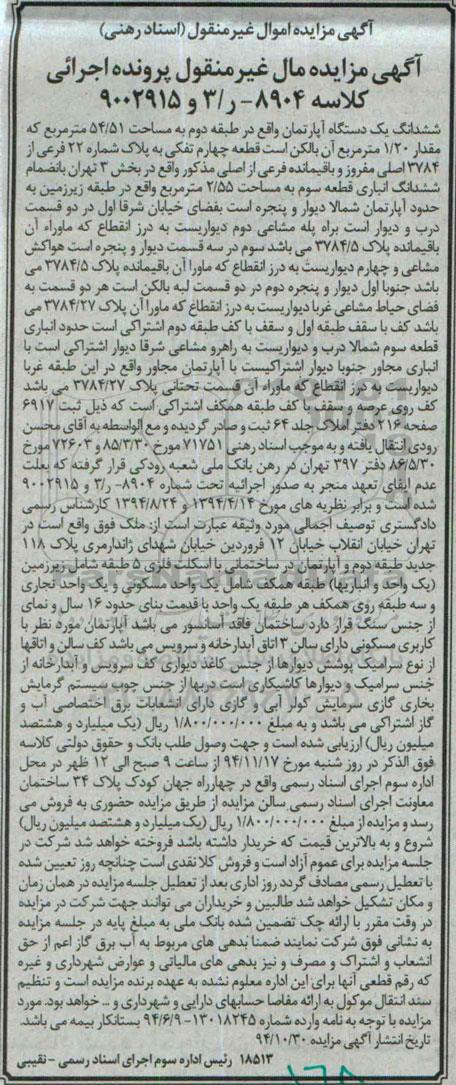 آگهی مزایده اموال غیرمنقول (اسناد رهنی)
آگهی مزایده مال غیرمنقول پرونده اجرائی
کلاسه ۸۹۰۴- ر/۳ و ۹۰۰۲۹۱۵
ششدانگ یک دستگاه آپارتمان واقع در طبقه دوم به مساحت ۵۴/۵۱ مترمربع که
مقدار ۱/۲۰ مترمربع آن بالکن است قطعه چهارم تفکی به پلاک شماره ۲۲ فرعی از
۳۷۸۴ اصلی مفروز و باقیمانده فرعی از اصلی مذکور واقع در بخش ۳ تهران بانضمام
ششدانگ انباری قطعه سوم به مساحت ۲/۵۵ مترمربع واقع در طبقه زیرزمین به
حدود آپارتمان شمالا دیوار و پنجره است بفضای خیابان شرقا اول در دو قسمت
درب و دیوار است براه پله مشاعی دوم دیواریست به درز انقطاع که ماوراء آن
باقیمانده پلاک ۳۷۸۴/۵ می باشد سوم در سه قسمت دیوار و پنجره است هواکش
مشاعی و چهارم دیواریست به درز انقطاع که ماورا آن باقیمانده پلاک ۳۷۸۴/۵ می
باشد جنوبا اول دیوار و پنجره دوم در دو قسمت لبه بالکن است هر دو قسمت به
فضای حیاط مشاعی غربا دیواریست به درز انقطاع که ماورا آن پلاک ۳۷۸۴/۲۷ می
باشد کف با سقف طبقه اول و سقف با کف طبقه دوم اشتراکی است حدود انباری
قطعه سوم شمالا درب و دیواریست به راهرو مشاعی شرقا دیوار اشتراکی است با
انباری مجاور جنوبا دیوار اشتراکیست با آپارتمان مجاور واقع در این طبقه غربا
دیواریست به درز انقطاع که ماوراء آن قسمت تحتانی پلاک ۳۷۸۴/۲۷ می باشد
کف روی عرصه و سقف با کف طبقه همکف اشتراکی است که ذیل ثبت ۶۹۱۷
صفحه ۲۱۶ دفتر املاک جلد ۶۴ ثبت و صادر گردیده و مع الواسطه به آقای محسن
رودی انتقال یافته و به موجب اسناد رهنی ۷۱۷۵۱ مورخ ۸۵/۳/۳۰ و ۷۲۶۰۳ مورخ
۸۶/۵/۳۰ دفتر ۳۹۷ تهران در رهن بانک ملی شعبه رودکی قرار گرفته که بعلت
عدم ایفای تعهد منجر به صدور اجرائیه تحت شماره ۸۹۰۴- ر/۳ و ۹۰۰۲۹۱۵
شده است و برابر نظریه های مورخ ۱۳۹۴/۴/۱۴ و ۱۳۹۴/۸/۲۴ کارشناس رسمی
دادگستری توصیف اجمالی مورد وثیقه عبارت است از: ملک فوق واقع است در
تهران خیابان انقلاب خیابان ۱۲ فروردین خیابان شهدای ژاندارمری پلاک ۱۱۸
جدید طبقه دوم و آپارتمان در ساختمانی با اسکلت فلزی ۵ طبقه شامل زیرزمین
(یک واحد و انباریها) طبقه همکف شامل یک واحد مسکونی و یک واحد تجاری
و سه طبقه روی همکف هر طبقه یک واحد با قدمت بنای حدود ۱۶ سال و نمای
از جنس سنگ قرار دارد ساختمان فاقد آسانسور می باشد آپارتمان مورد نظر با
کاربری مسکونی دارای سالن ۳ اتاق آبدارخانه و سرویس می باشد کف سالن و اتاقها
از نوع سرامیک پوشش دیوارها از جنس کاغذ دیواری کف سرویس و آبدارخانه از
جنس سرامیک و دیوارها کاشیکاری است دربها از جنس چوب سیستم گرمایش
بخاری گازی سرمایش کولر آبی و گازی دارای انشعابات برق اختصاصی آب و
گاز اشتراکی می باشد و به مبلغ ۱/۸۰۰/۰۰۰/۰۰۰ ریال (یک میلیارد و هشتصد
میلیون ریال) ارزیابی شده است و جهت وصول طلب بانک و حقوق دولتی کلاسه
فوق الذکر در روز شنبه مورخ ۹۴/۱۱/۱۷ از ساعت ۹ صبح الی ۱۲ ظهر در محل
اداره سوم اجرای اسناد رسمی واقع در چهارراه جهان کودک پلاک ۳۴ ساختمان
معاونت اجرای اسناد رسمی سالن مزایده از طریق مزایده حضوری به فروش می
رسد و مزایده از مبلغ ۱/۸۰۰/۰۰۰/۰۰۰ ریال (یک میلیارد و هشتصد میلیون ریال)
شروع و به بالاترین قیمت که خریدار داشته باشد فروخته خواهد شد شرکت در
جلسه مزایده برای عموم آزاد است و فروش کلا نقدی است چنانچه روز تعیین شده
با تعطیل رسمی مصادف گردد روز اداری بعد از تعطیل جلسه مزایده در همان زمان
و مکان تشکیل خواهد شد طالبین و خریداران می توانند جهت شرکت در مزایده
در وقت مقرر با ارائه چک تضمین شده بانک ملی به مبلغ پایه در جلسه مزایده
به نشانی فوق شرکت نمایند ضمنا بدهی های مربوط به آب برق گاز اعم از حق
انشعاب و اشتراک و مصرف و نیز بدهی های مالیاتی و عوارض شهرداری و غیره
که رقم قطعی آنها برای این اداره معلوم نشده به عهده برنده مزایده است و تنظیم
سند انتقال موکول به ارائه مفاصا حسابهای دارایی و شهرداری و ... خواهد بود. مورد
مزایده با توجه به نامه وارده شماره ۱۳۰۱۸۲۴۵- ۹۴/۶/۹ بستانکار بیمه می باشد.
تاریخ انتشار آگهی مزایده ۹۴/۱۰/۳۰
۱۸۵۱۳ رئیس اداره سوم اجرای اسناد رسمی - نقیبی